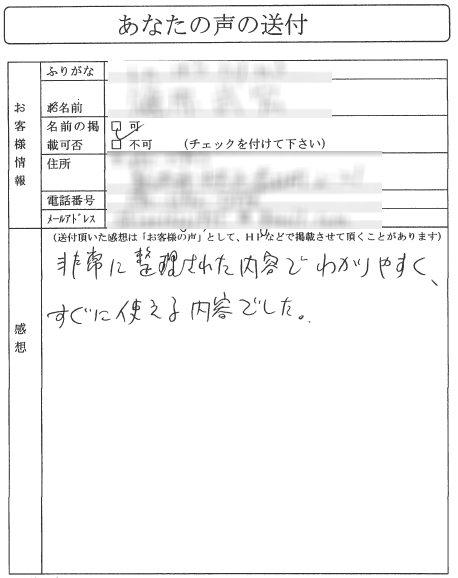 あなたの声の送付
お客様情報
ふりがな
お名前
名前の掲載可否
□ 可
□ 不可 (チェックを付けて下さい)
住所
電話番号
メールアドレス
感想
(送付頂いた感想は「お客様の声」として、HPなどで掲載させて頂くことがあります)
非常に整理された内容でわかりやすく、
すぐに使える内容でした。